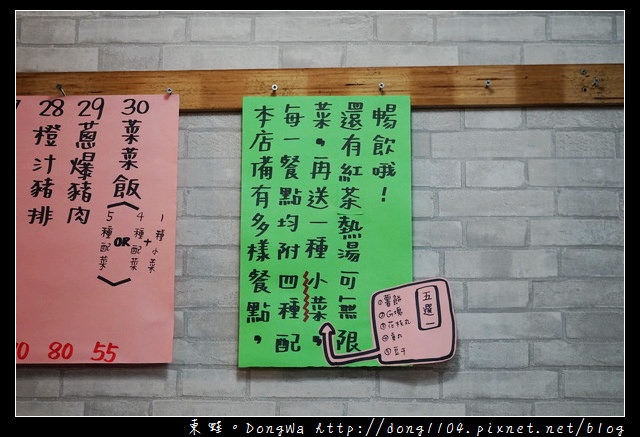 本店備有多樣餐點，
每一餐點均附四種配
菜，再送一種小菜，
還有紅茶熱湯可無限
暢飲哦！
五選一
①薯餅
③花枝丸
⑤豆干
30 菜菜飯
5種配菜 OR 4種配菜 + 1種小菜
55
29 蔥爆豬肉
80
28 橙汁豬排
東蛙。DongWa http://dong1104.pixnet.net/blog